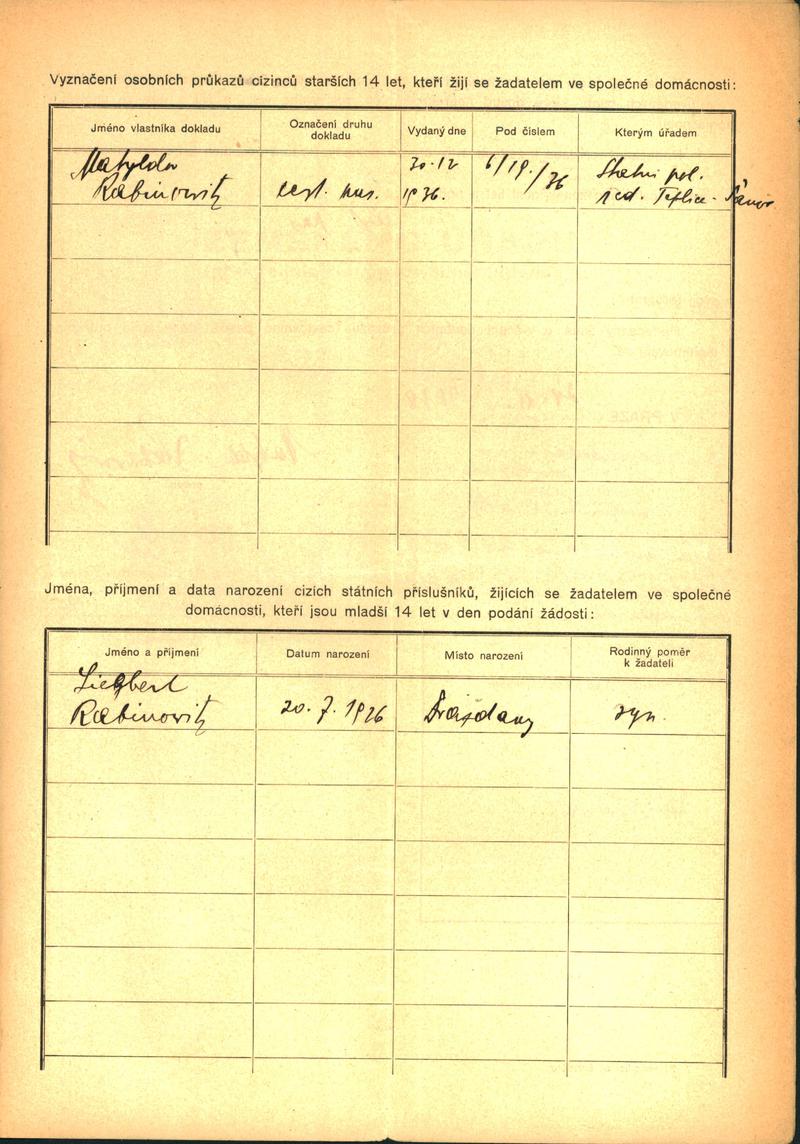 Vyznačení osobních průkazů cizinců starších 14 let, kteří žijí se žadatelem ve společné domácnosti:
Jméno vlastníka dokladu
Označení druhu
dokladu
Vydaný dne
Pod číslem
Kterým úřadem
Matylda
Rabinowitz
cest. pas.
20. 12
1936.
6/19/36
Státní pol.
řed. Teplice - Šanov
Jména, příjmení a data narození cizích státních příslušníků, žijících se žadatelem ve společné
domácnosti, kteří jsou mladší 14 let v den podání žádosti:
Jméno a příjmení
Datum narození
Místo narození
Rodinný poměr
k žadateli
Siegbert
Rabinowitz
20. 7. 1926
Drážďany
syn.